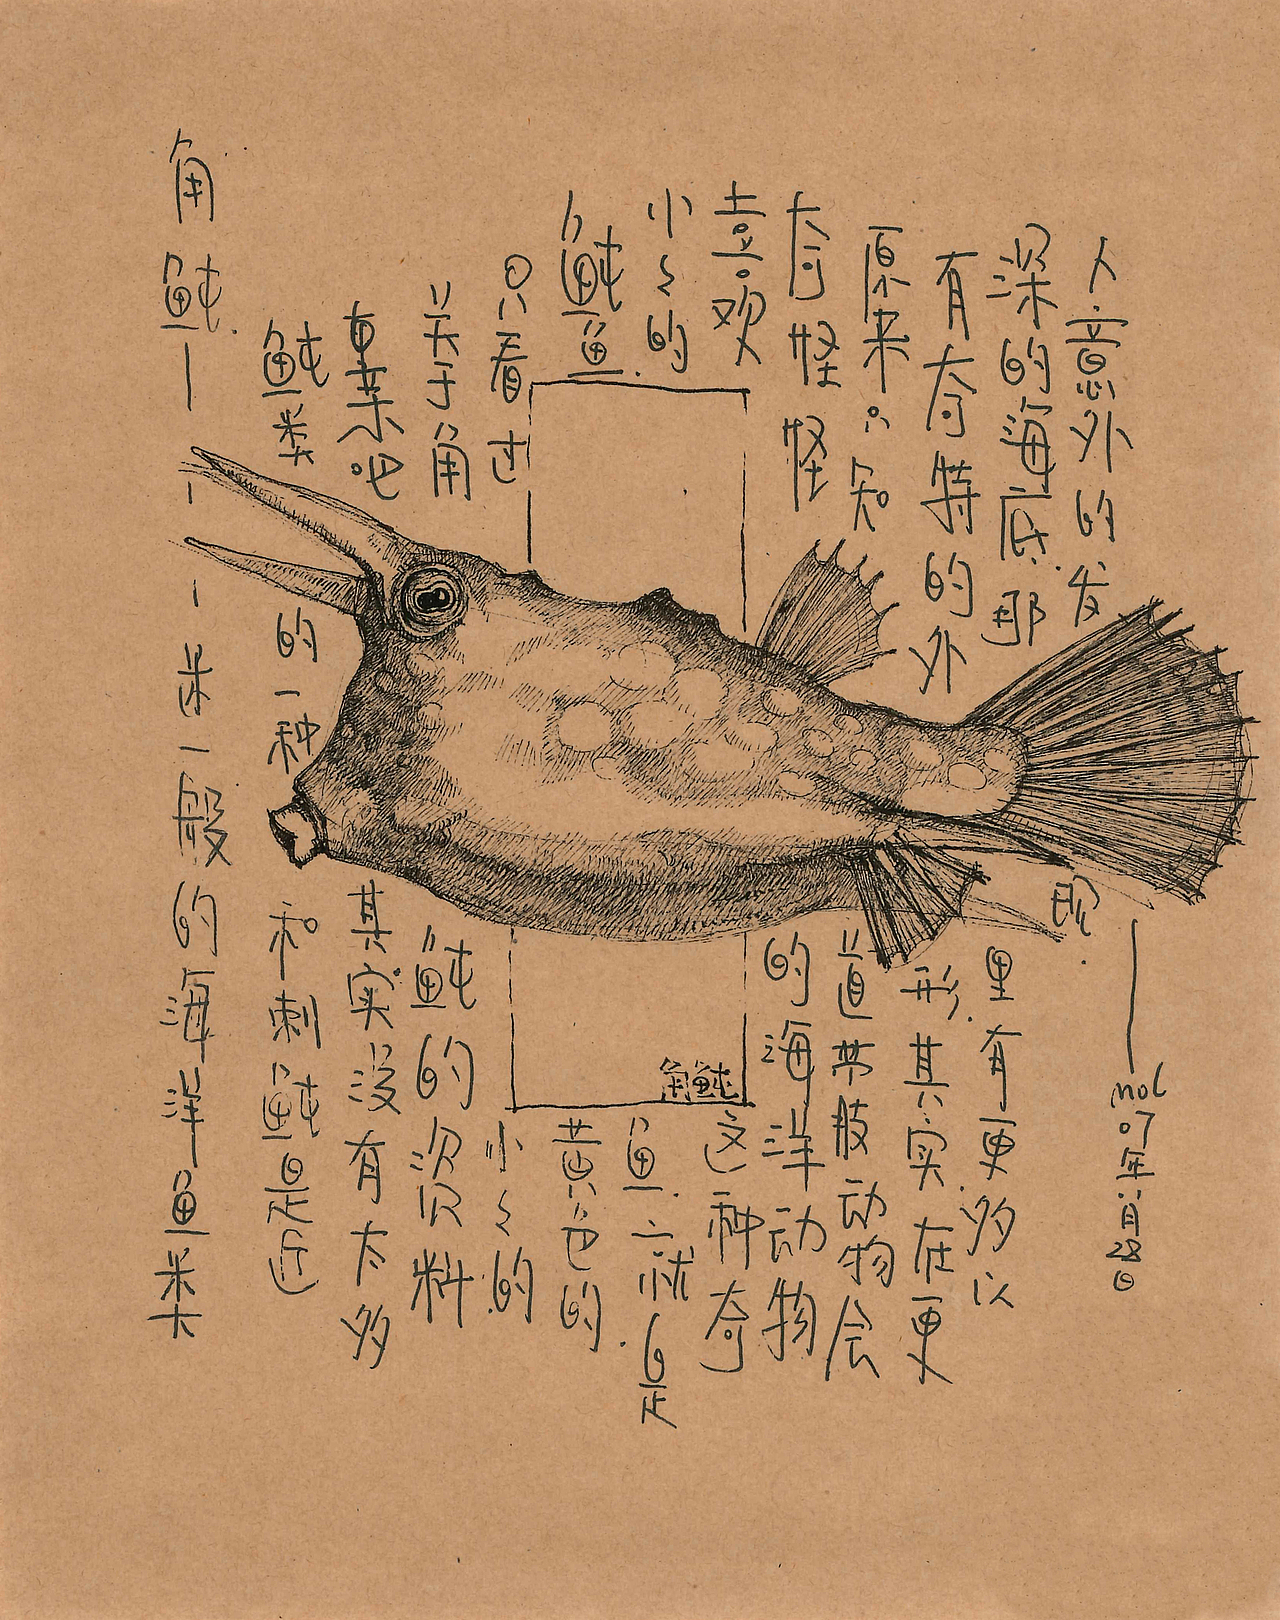 角鲀———米一般的海洋鱼类
鲀类的一种 和刺鲀是近
亲吧 其实没有太多
关于角鲀的资料
只看过小々的
鲀鱼.黄色的.
小々的鱼.就是
喜欢这种奇
奇怪怪的海洋动物
原来只知道带肢动物会
有奇特的外形.其实.在更
深的海底.那里有更多以
人意外的发现.
—mol 07年八月28日
角鲀